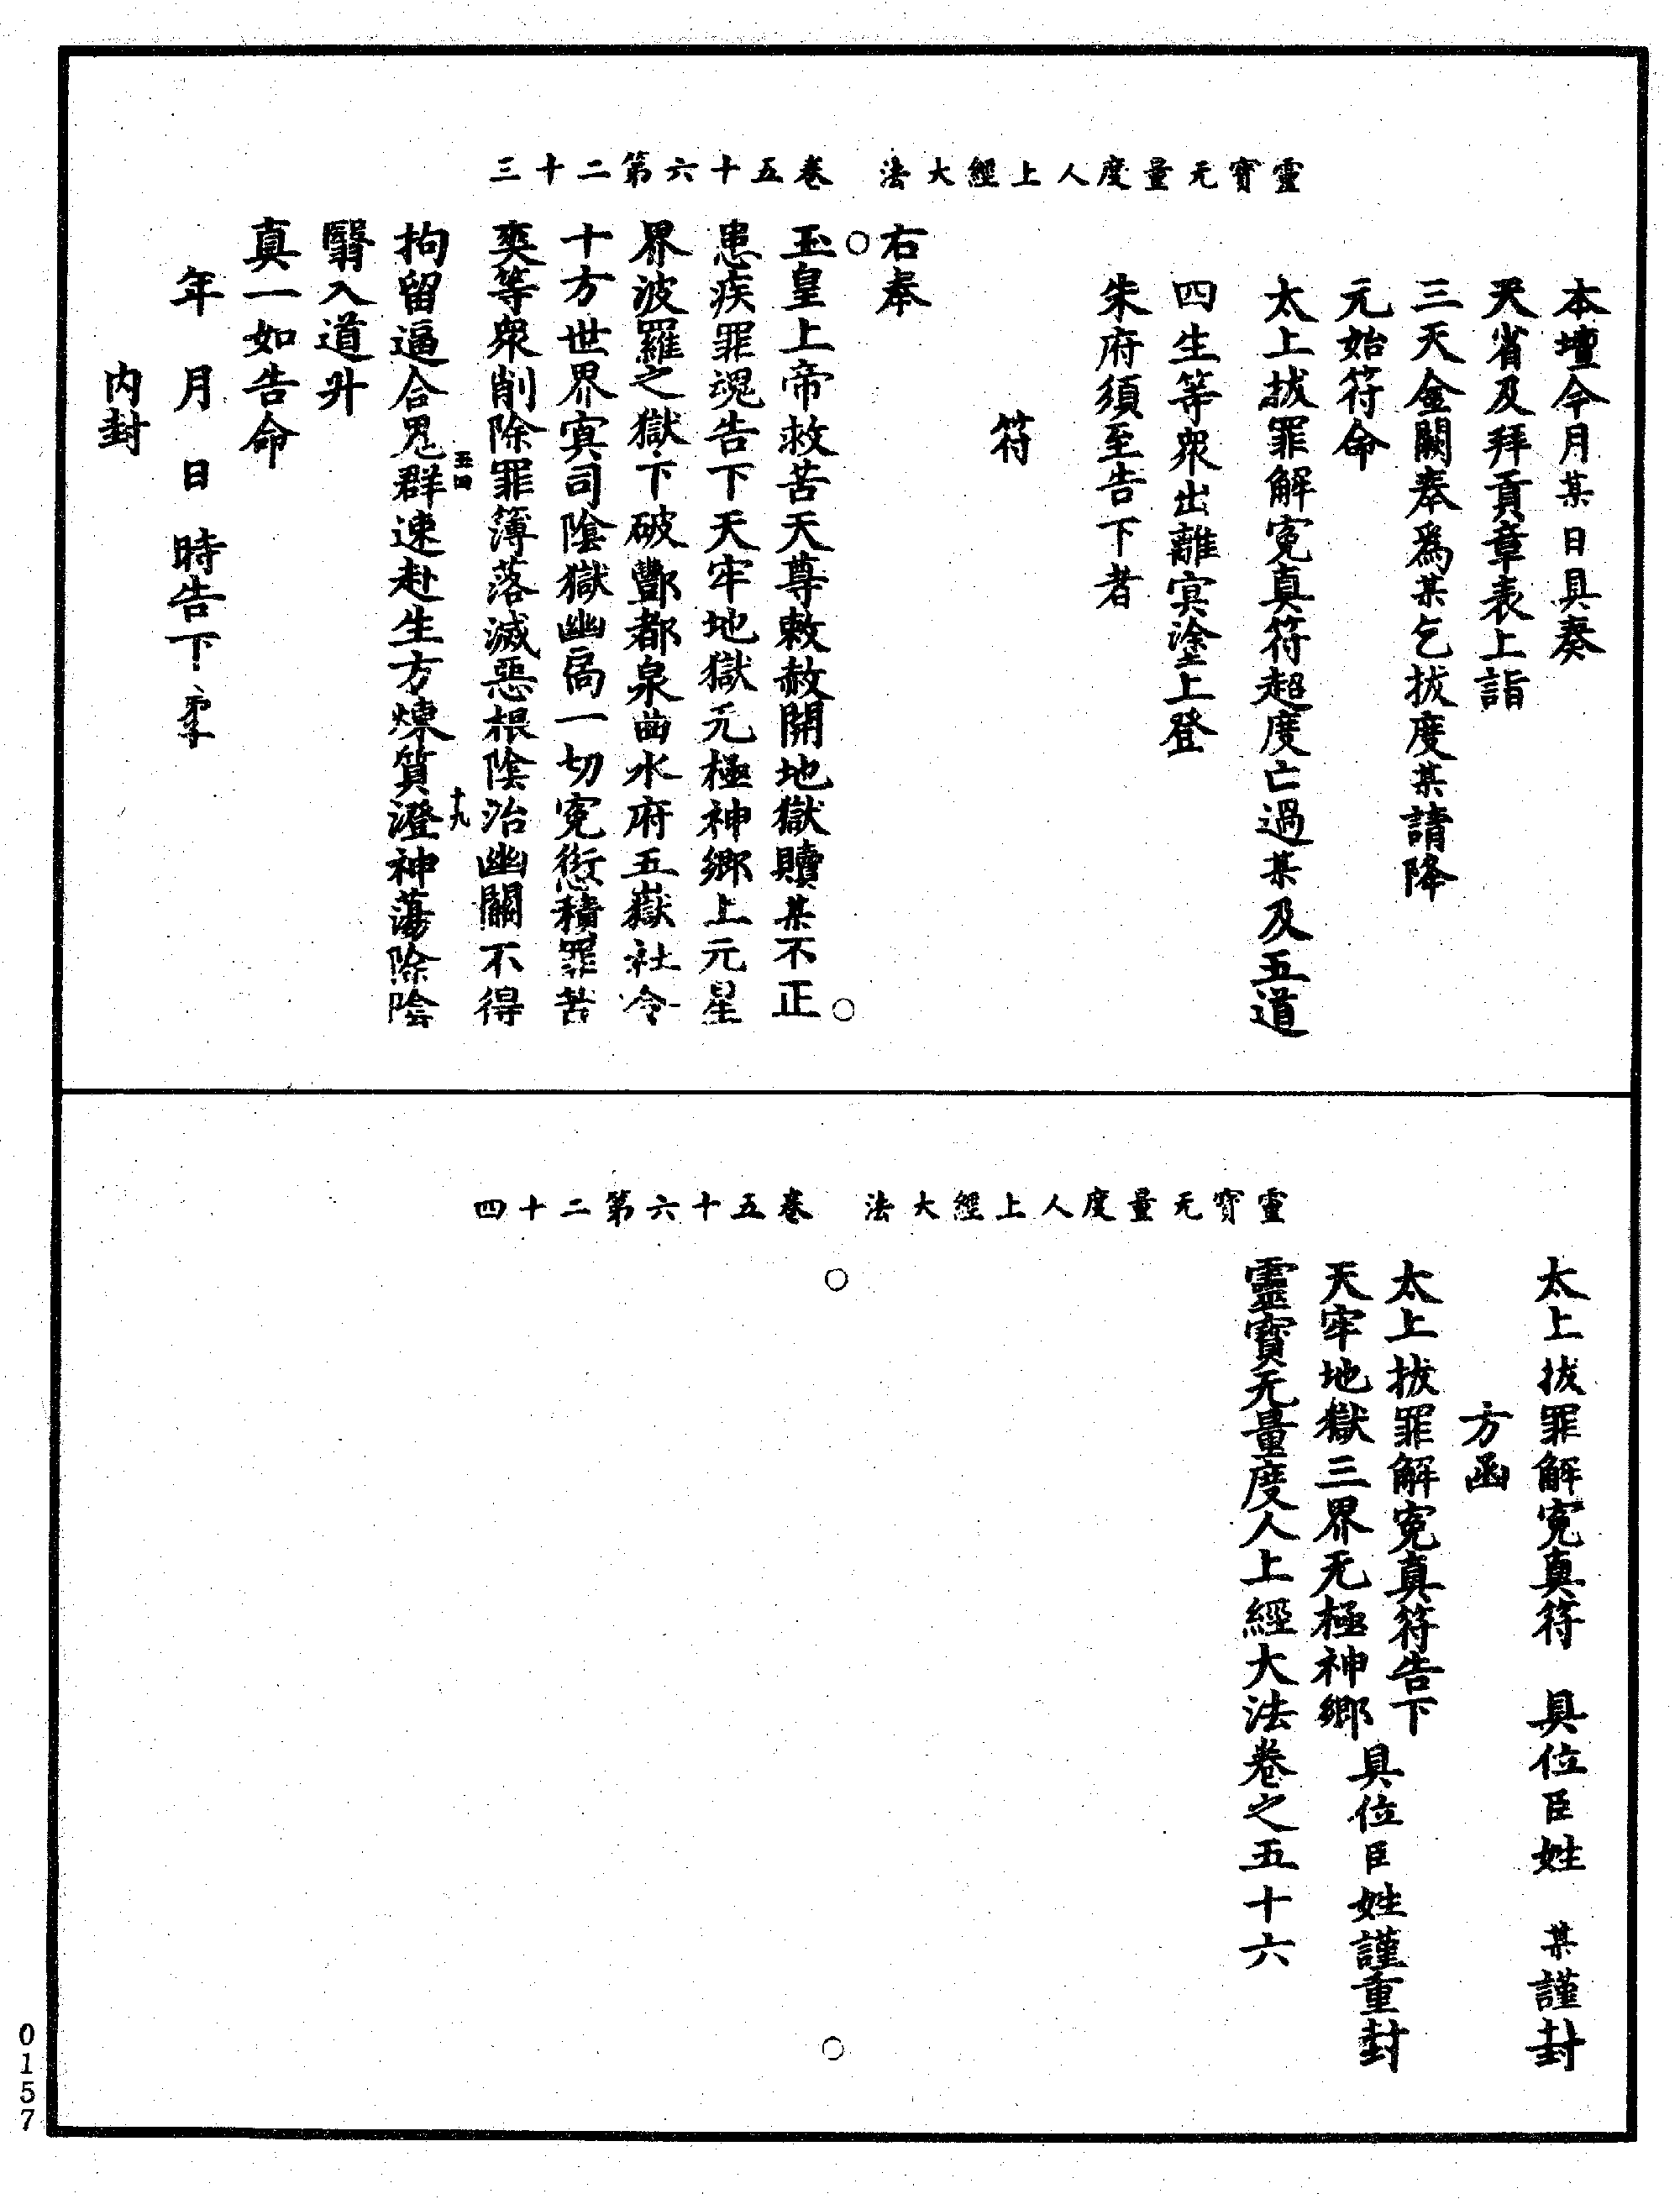 靈寶无量度人上經大法　卷五十六第二十三
本壇今月某日具奏
天省及拜貢章表上詣
三天金闕奉爲某乞拔度某請降
元始符命
太上拔罪解寃真符超度亡過某及五道
四生等衆出離冥塗上登
朱府須至告下者
符
右奉
玉皇上帝救苦天尊敕赦開地獄贖某不正
患疾罪魂告下天牢地獄无極神鄉上元星
界波羅之獄下破酆都泉曲水府五嶽社令
十方世界冥司陰獄幽局一切寃愆積罪苦
爽等衆削除罪簿落滅惡根陰治幽關不得
拘留逼合鬼群速赴生方煉質澄神蕩除陰
五四
十九
翳入道升
真一如告命
年　月　日　時告下
內封
靈寶无量度人上經大法　卷五十六第二十四
太上拔罪解寃真符　具位臣姓　某謹封
方函
太上拔罪解寃真符告下
天牢地獄三界无極神鄉
具位臣姓謹重封
靈寶无量度人上經大法卷之五十六
0157